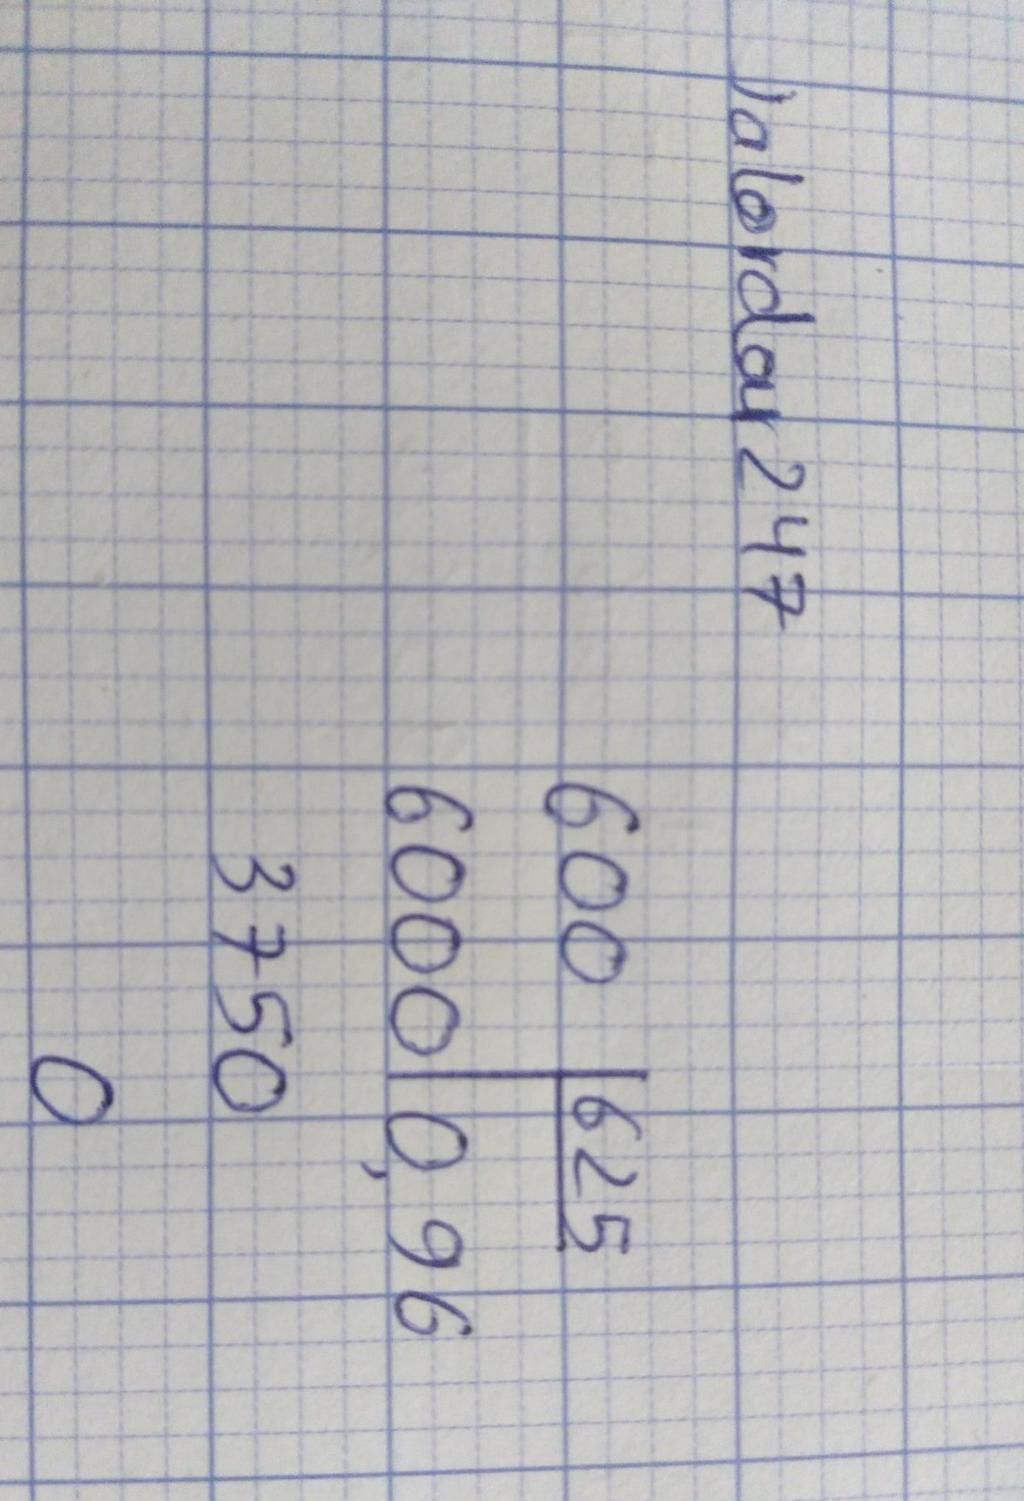 Jalordar247
600 625
6000 0,96
3750
0